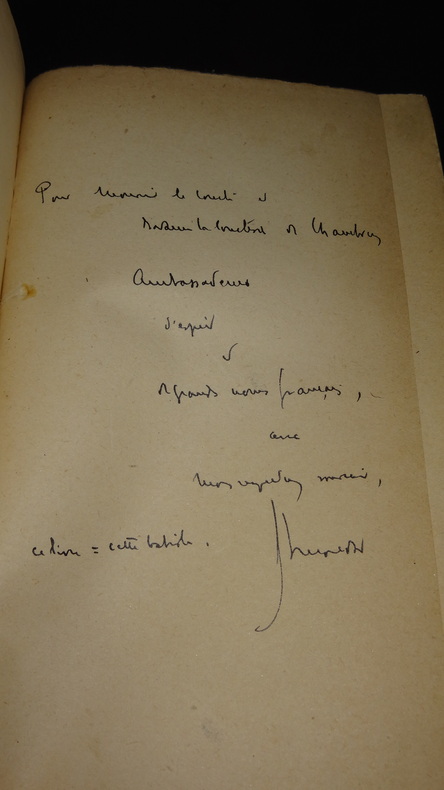 Pour Monsieur le Comte &
Madame la Comtesse de Chambrun
Ambassadeurs
d'esprit
&
de grands noms français,
avec
mon
ce livre = cette babiole.